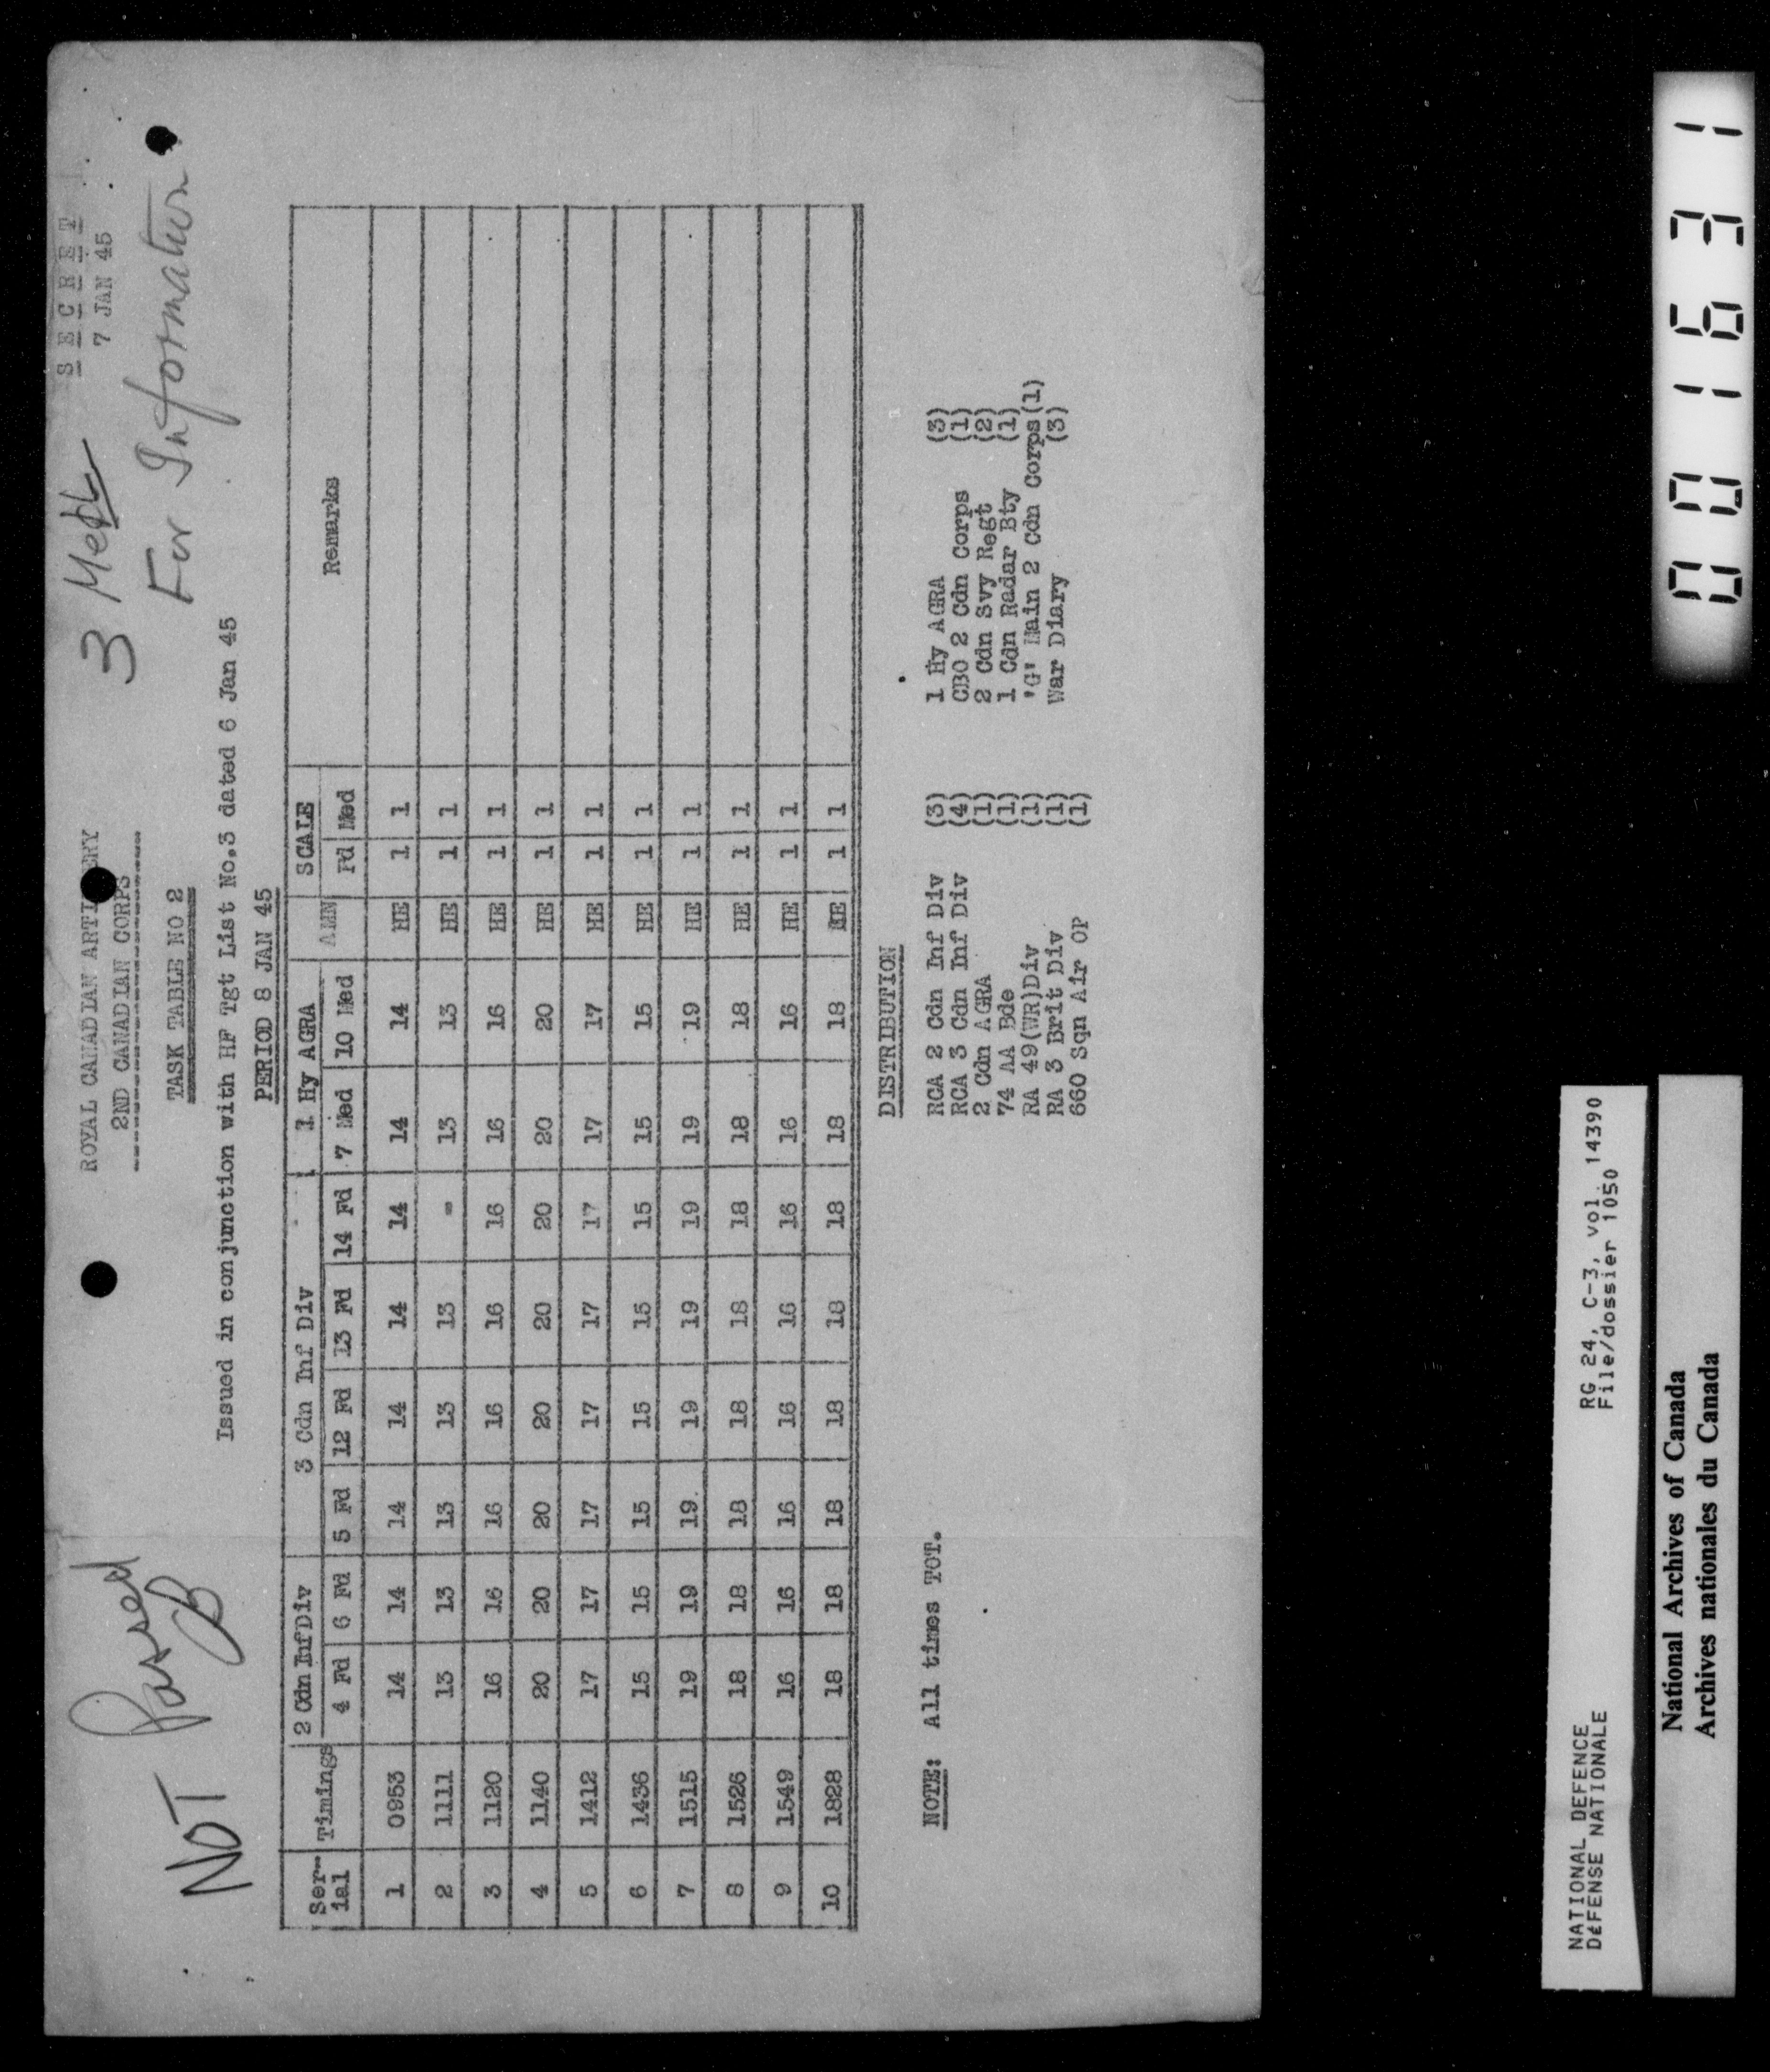 SECRET
7 JAN 45
3 Med
For Information
NOT Passed
ROYAL CANADIAN ARTI ERY
2ND CANADIAN CORPS
TASK TABLE NO 2
Issued in conjunction with HF Tgt List No.3 dated 6 Jan 45
PERIOD 8 JAN 45
Ser- Timings 2 Cdn Inf Div 3 Cdn Inf Div 1 Hy AGRA AMN SCALE Remarks
ial 4 Fd 6 Fd 5 Fd 12 Fd 13 Fd 14 Fd 7 Med 10 Med Fd Med
1 0953 14 14 14 14 14 14 14 14 HE 1 1
2 1111 13 13 13 13 13 - 13 13 HE 1 1
3 1120 16 16 16 16 16 16 16 16 HE 1 1
4 1140 20 20 20 20 20 20 20 20 HE 1 1
5 1412 17 17 17 17 17 17 17 17 HE 1 1
6 1436 15 15 15 15 15 15 15 15 HE 1 1
7 1515 19 19 19 19 19 19 19 19 HE 1 1
8 1526 18 18 18 18 18 18 18 18 HE 1 1
9 1549 16 16 16 16 16 16 16 16 HE 1 1
10 1828 18 18 18 18 18 18 18 18 HE 1 1
NOTE: All times TOT.
DISTRIBUTION
RCA 2 Cdn Inf Div (3)
RCA 3 Cdn Inf Div (4)
2 Cdn AGRA (1)
74 AA Bde (1)
RA 49(WR)Div (1)
RA 3 Brit Div (1)
660 Sqn Air OP (1)
1 Hy AGRA (3)
CBO 2 Cdn Corps (1)
2 Cdn Svy Regt (2)
1 Cdn Radar Bty (1)
'G' Main 2 Cdn Corps(1)
War Diary (3)
NATIONAL DEFENCE RG 24, C-3, vol. 14390
DÉFENSE NATIONALE File/dossier 1050
National Archives of Canada
Archives nationales du Canada
001631